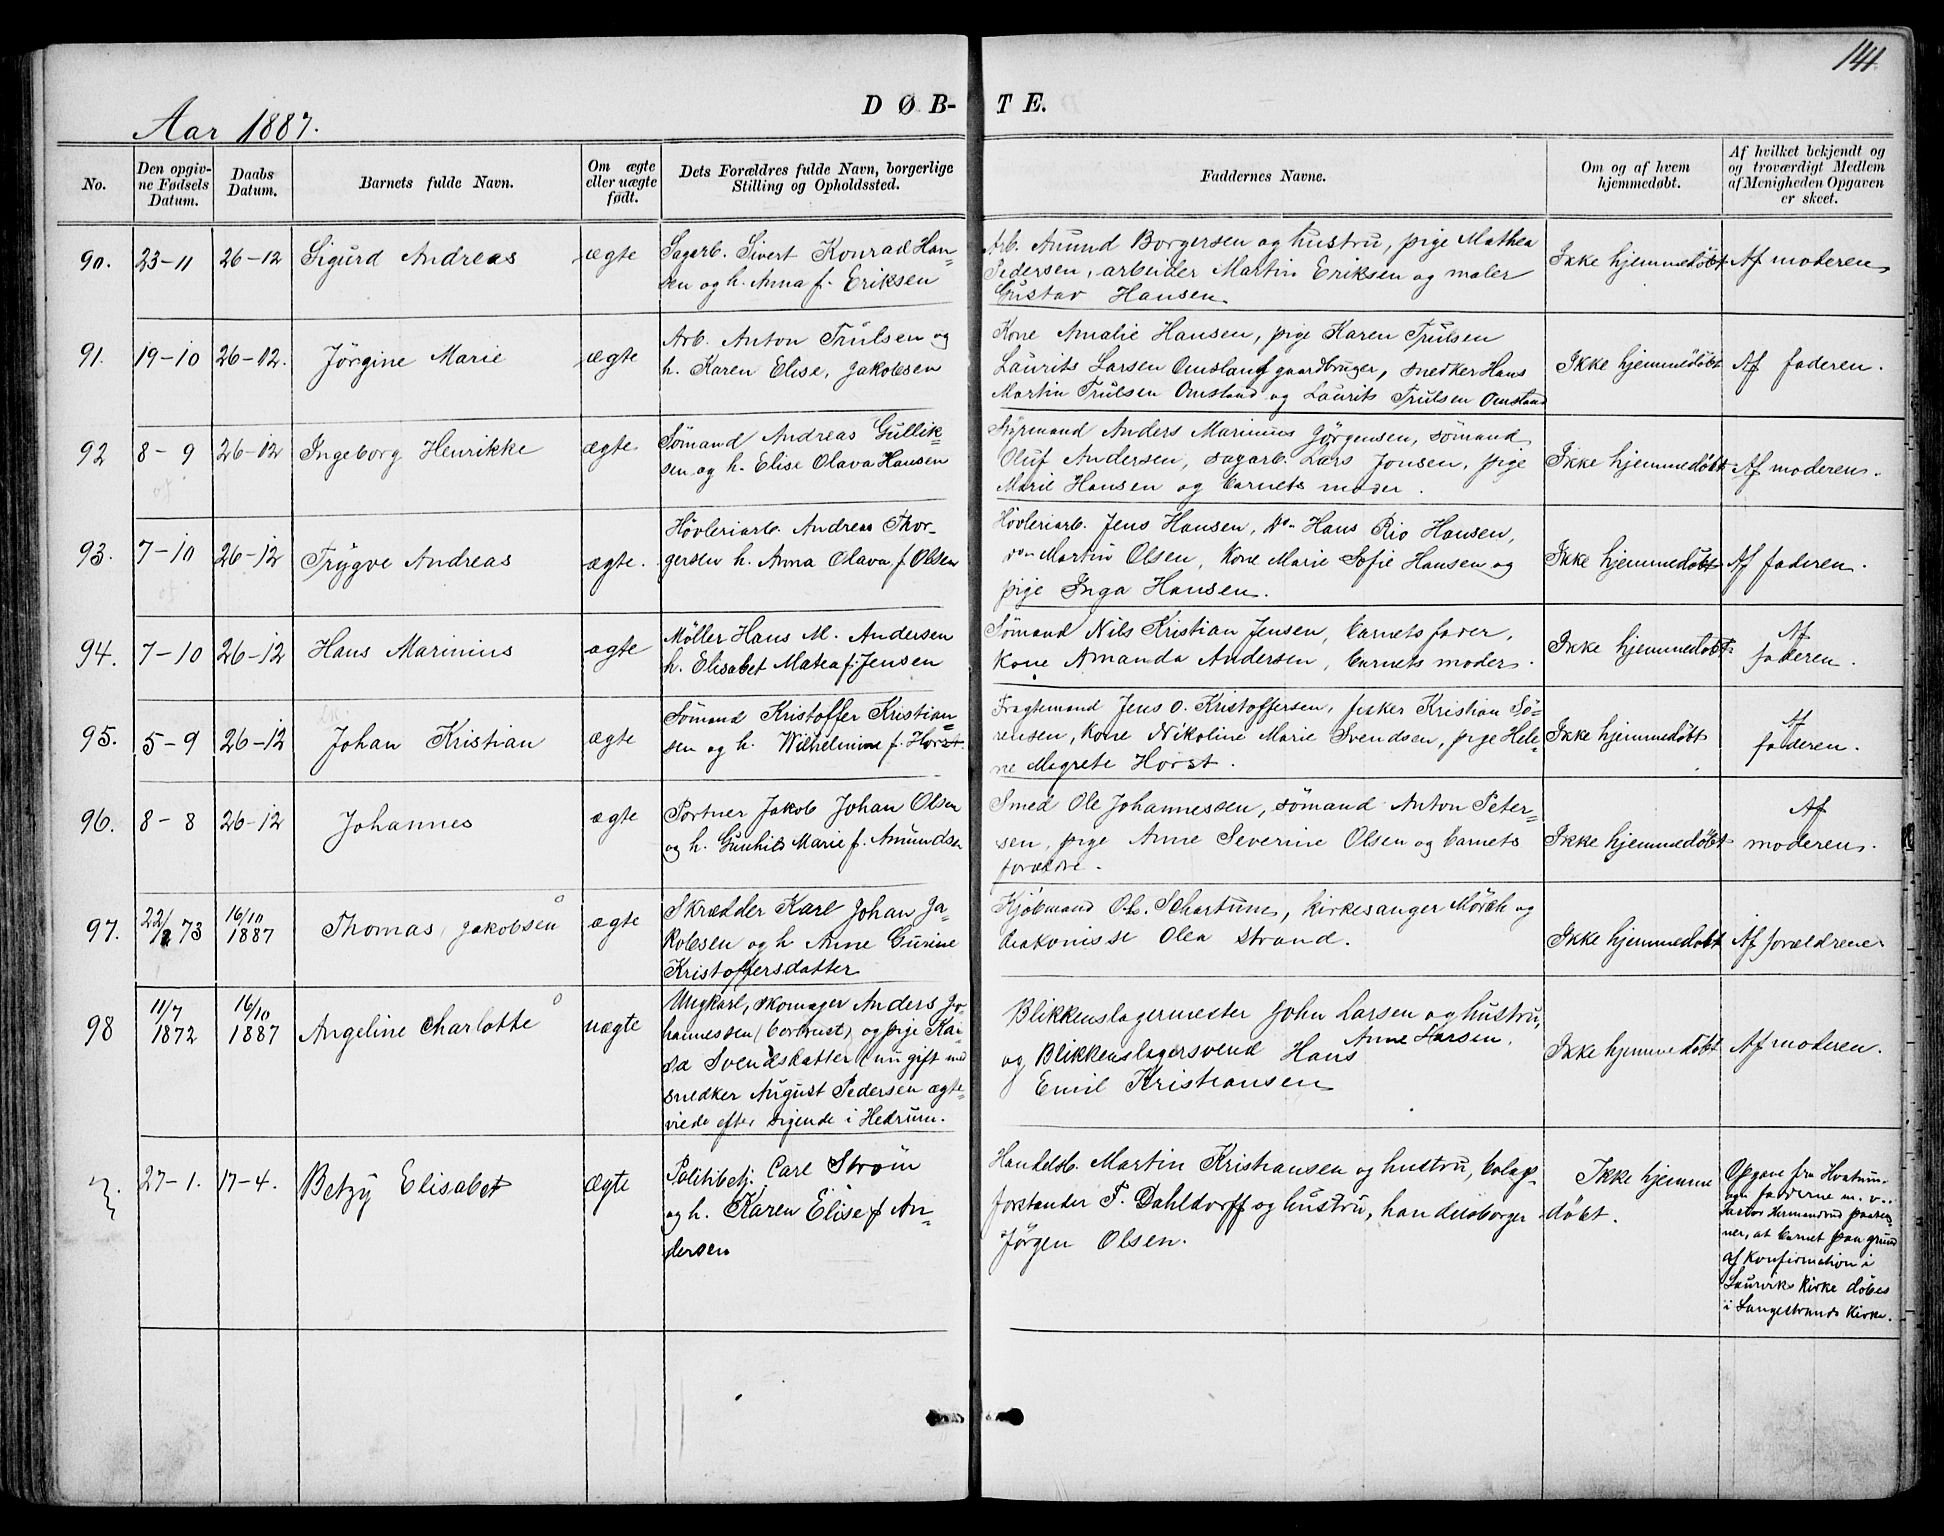 141
DØB-TE.
Aar 1887.
No.
Den opgiv-
ne Fødsels
Datum.
Daabs
Datum.
Barnets fulde Navn.
Om ægte
eller uægte
født.
Dets Forældres fulde Navn, borgerlige
Stilling og Opholdssted.
Faddernes Navne.
Om og af hvem
hjemmedøbt.
Af hvilket bekjendt og
og troværdigt Medlem
af Menigheden Opgaven
er skeet.
90. 23-11 26-12 Sigurd Andreas ægte
Sagarb. Sivert Konrad Han-
sen og h. Anna f. Eriksen
Arb. Amund Borgersen og hustru, pige Mathea
Pedersen, arbeider Martin Eriksen og maler
Gustav Hansen.
Ikke hjemmedøbt Af moderen
91. 19-10 26-12. Jørgine Marie ægte
Arb. Anton Trulsen og
h. Karen Elise, Jakobsen
Kone Amalie Hansen, pige Karen Trulsen
Laurits Larsen Omsland gaardbruger, snedker Hans
Martin Trulsen Omsland og Laurits Trulsen Omsland
Ikke hjemmedøbt Af faderen.
92 8-9 26-12 Ingeborg Henrikke ægte
Sømand Andreas Gullik-
sen og h. Elise Olava Hansen
Styrmand Anders Marinius Jørgensen, sømand
Oluf Andersen, sagarb. Lars Jonsen, pige
Marie Hansen og barnets moder.
Ikke hjemmedøbt Af moderen.
93. 7-10 26-12 Trygve Andreas ægte.
Høvleriarb. Andreas Thor-
gersen h. Anna Olava f. Olsen
Høvleriarb. Jens Hansen, do. Hans Rio Hansen,
do Martin Olsen, Kone Marie Sofie Hansen og
pige Inga Hansen.
Ikke hjemmedøbt Af faderen.
94. 7-10 26-12 Hans Marinius ægte
Møller Hans M. Andersen
h. Elisabet Matea f. Jensen
Sømand Nils Kristian Jensen, barnets fader,
Kone Amanda Andersen, barnets moder.
Ikke hjemmedøbt
Af
faderen.
95. 5-9 26-12 Johan Kristian ægte
Sømand Kristoffer Kristian-
sen og h. Wilhelmine f. Horst
Fragtemand Jens O. Kristoffersen, fisker Kristian Sø-
rensen, Kone Nikoline Marie Svendsen, pige Hele-
ne Magrete Horst.
Ikke hjemmedøbt
Af
faderen.
96. 8-8 26-12 Johannes ægte
Portner Jakob Johan Olsen
og h. Gunhild Marie f. Amundsen
Smed Ole Johannessen, sømand Anton Peter-
sen, pige Anne Severine Olsen og barnets
forældre.
Ikke hjemmedøbt
Af
moderen.
97. 22/ 73 16/10 1887 Thomas, Jakobsen ægte
Skrædder Karl Johan Ja-
kobsen og h Anne Gurine
Kristoffersdatter
Kjøbmand Schartum, kirkesanger Mørch og
diakonisse Olea Strand.
Ikke hjemmedøbt Af forældrene
98 11/7 1872 16/10 1887 Angeline Charlotte uægte
Ungkarl, skomager Anders Jo-
hannessen (bortreist) og pige Kai-
sa Svendsdatter (nu gift med
snedker August Pedersen ægte-
viede efter sigende i Hedrum.
Blikkenslagermester John Larsen og hustru,
Anne Larsen,
og Blikkenslagersvend Hans
Emil Kristiansen
Ikke hjemmedøbt Af moderen.
27-1. 17-4. Betzy Elisabet ægte
Politibetj. Carl Strøm
og h. Karen Elise f An-
dersen
Handelsb. Martin Kristiansen og hustru, bolags-
forstander F. Dahldorff og hustru, handelsborger
Jørgen Olsen.
Ikke hjemme
døbt.
Opgave fra
fadderne m. v.
Pastor
ner, at barnet paa grund
af Konfirmation i
Laurviks Kirke døbes
i Langestrands Kirke.